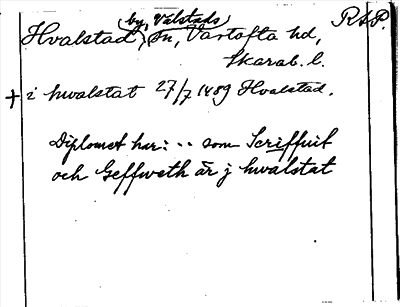 by, Valstads
Hvalstad, sn, Vartofta hd, R.A.P.
Skarab. l.
+ i hwalstat 27/7 1489 Hvalstad.
Diplomet har: .. som Scriffuit
och Geffweth är j hwalstat